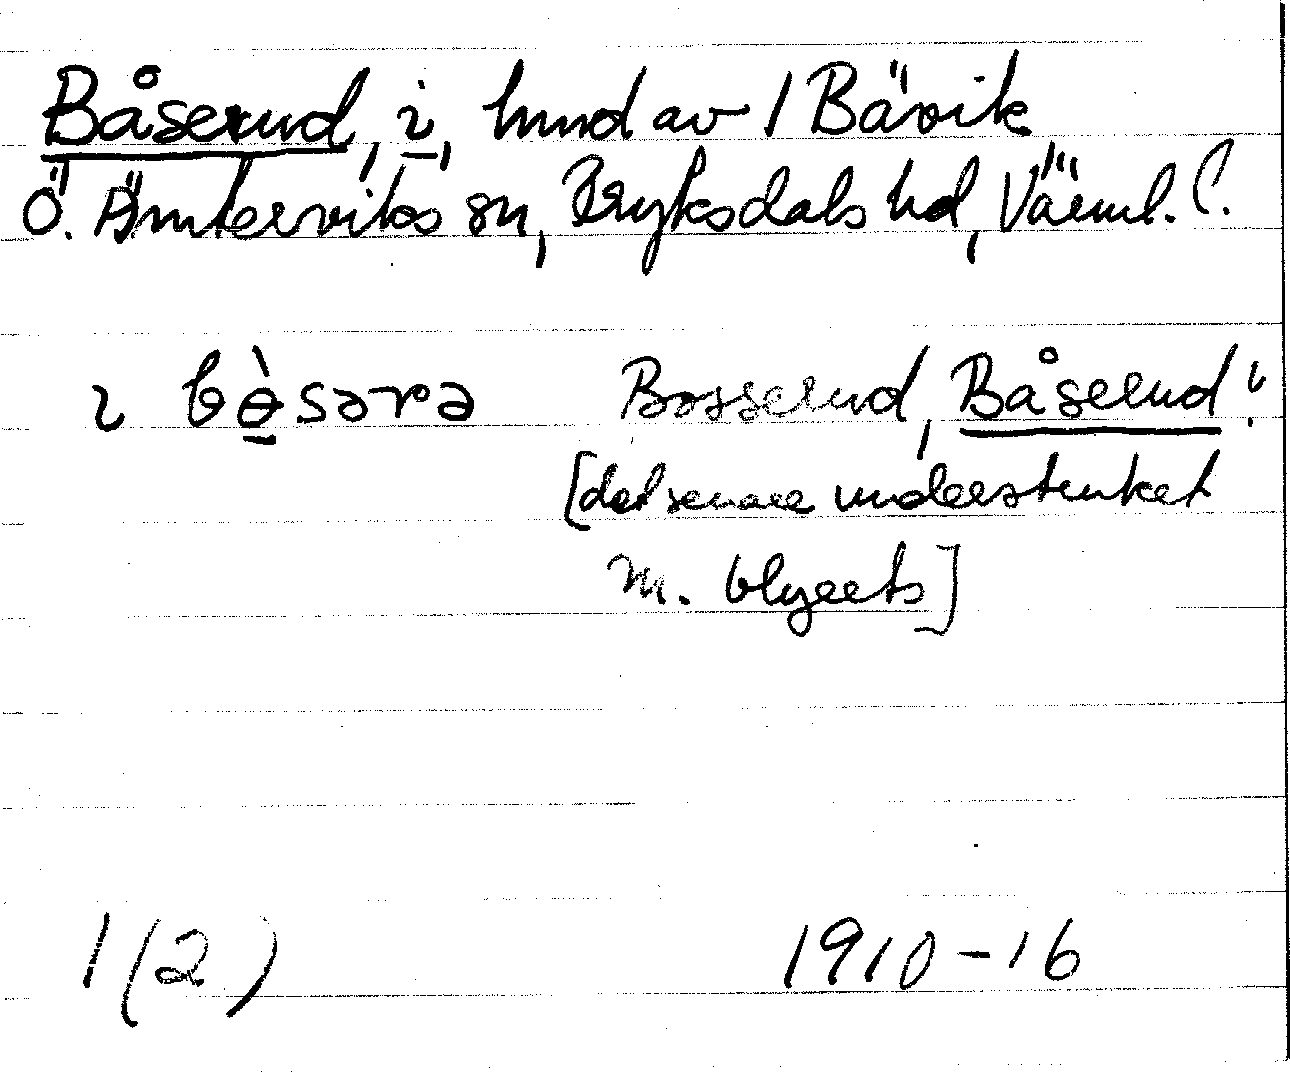 Båserud, i, hmd av 1 Bävik
Ö. Ämterviks sn, Fryksdals hd, Värml. l.
ɩ bɵ̀sərə Bosserud, Båserud!
[det senare understruket
m. blyerts]
1(2) 1910-16